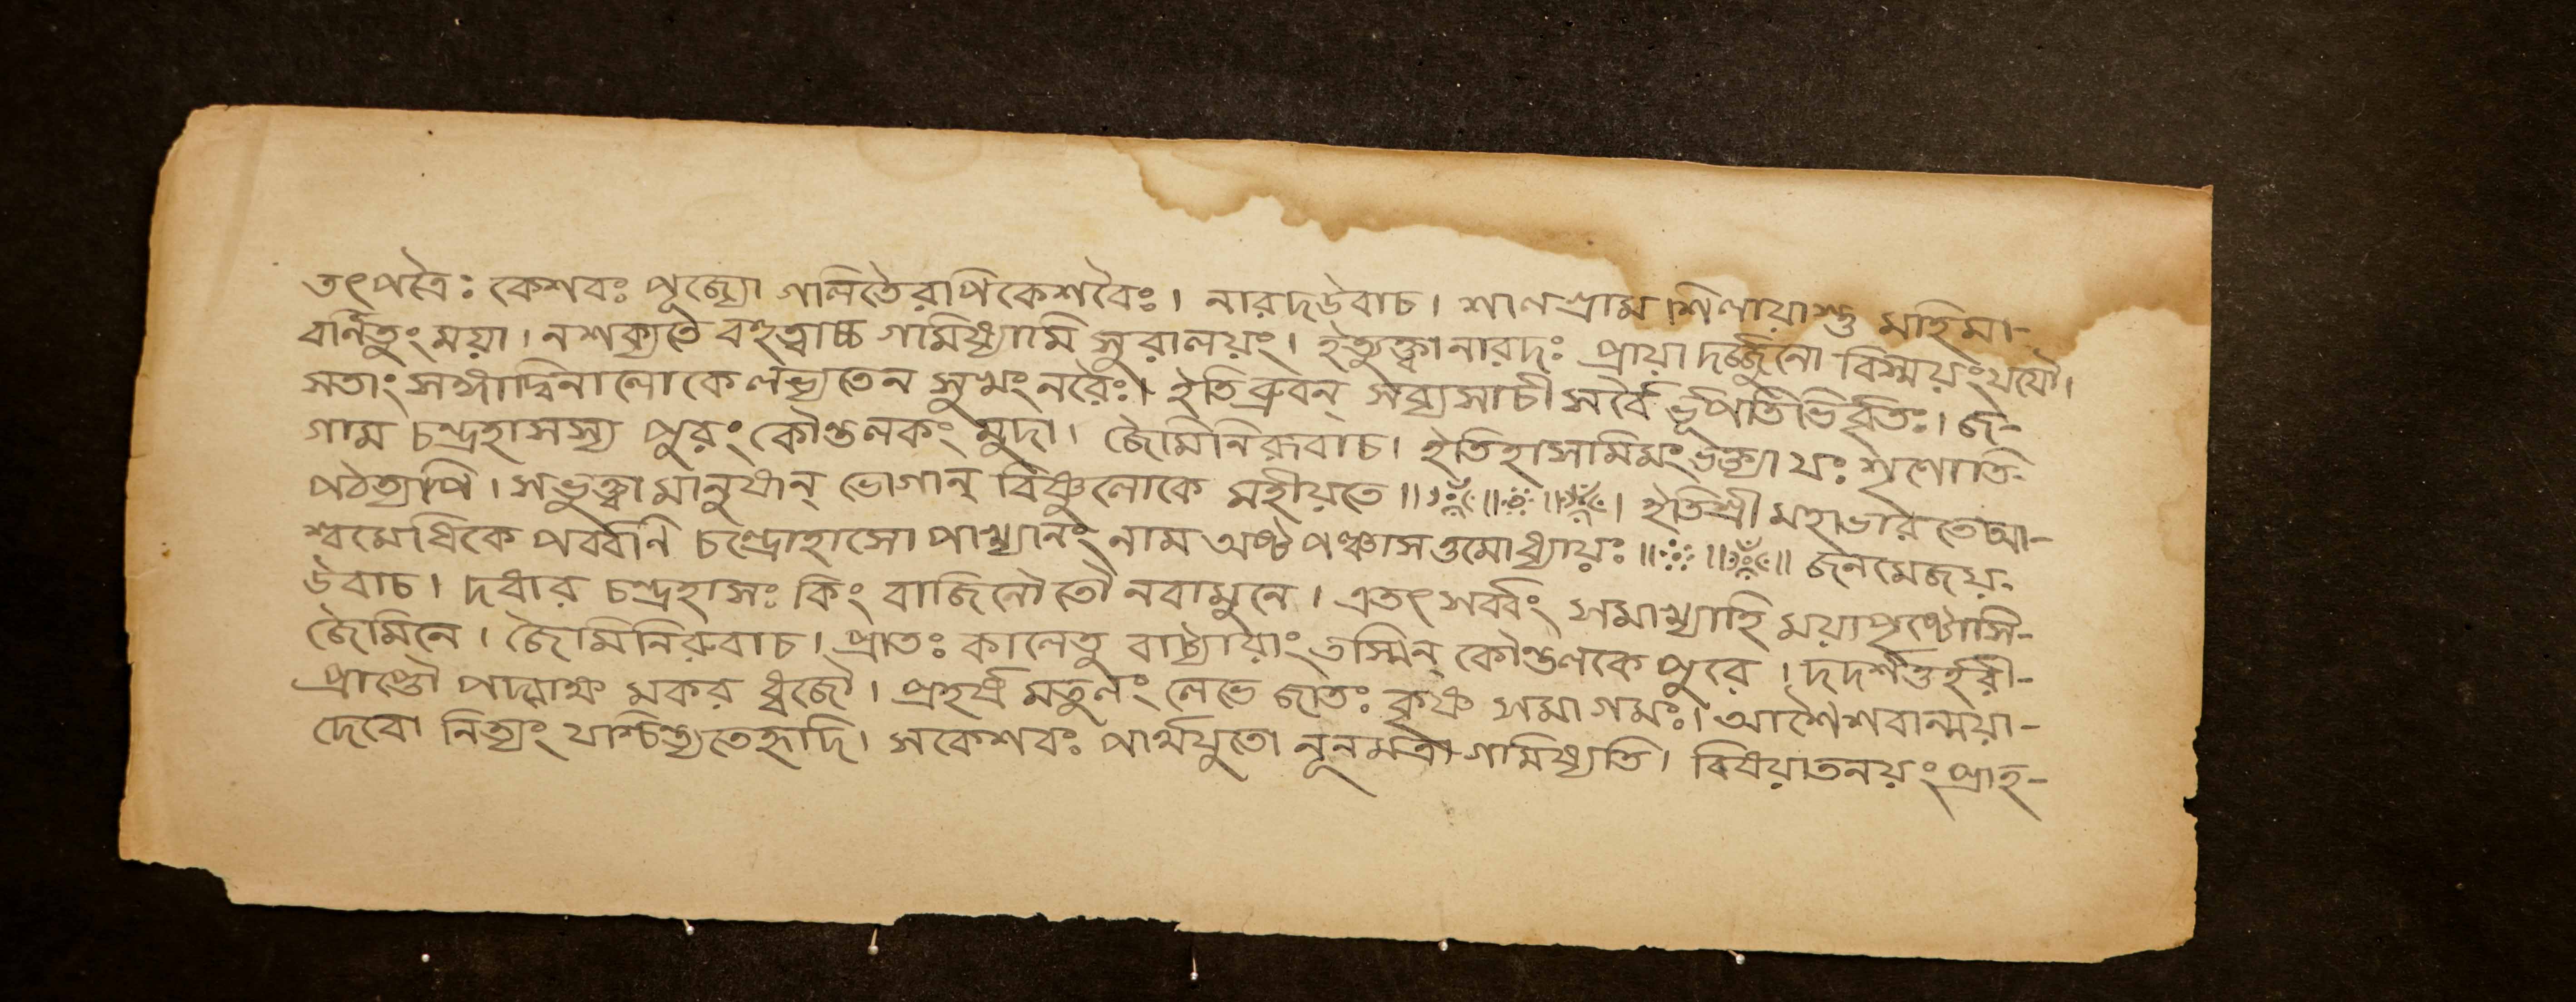 তৎপত্রৈঃ কেশবঃ পূজ্যো গলিতৈরপিকেশবৈঃ। নারদউবাচ। শালগ্রাম শিলায়াস্তু মহিমা-
বর্নিতুং ময়া। নশক্যতে বহুত্বাচ্চ গমিষ্যামি সুরালয়ং। ইত্যুক্ত্বা নারদঃ প্রায়া দর্জ্জুনো বিস্ময়ংযযৌ।
সতাং সঙ্গাদ্বিনালোকে লভ্যতেন সুখংনরৈঃ। ইতিব্রুবন্ সব্যসাচী সর্বৈ র্ভূপতিভির্বৃতঃ। জ-
গাম চন্দ্রহাসস্য পুরং কৌন্তলকং মুদা। জৈমিনিরূবাচ। ইতিহাসমিমং ভক্ত্যা যঃ শৃণোতি-
পঠত্যপি। সভুক্ত্বা মানুষান্ ভোগান্ বিষ্ণুলোকে মহীয়তে॥ ॥ ॥ । ইতিশ্রী মহাভারতেআ-
শ্বমেধিকে পর্ব্বনি চন্দ্রোহাসো পাখ্যানং নাম অষ্ট পঞ্চাসত্তমোধ্যায়ঃ॥ ॥ ॥ জনমেজয়-
উবাচ। দধার চন্দ্রহাসঃ কিং বাজিনৌ তৌ নবামুনে। এতৎ সর্ব্বং সমাখ্যাহি ময়াপৃষ্টোসি-
জৈমিনে। জৈমিনিরুবাচ। প্রাতঃ কালেতু বাষ্ট্যায়াং তস্মিন্ কৌন্তলকে পুরে। দদর্শতুর্হরী-
প্রাপ্তৌ পদ্মাক্ষ মকর ধ্বজৌ। প্রহর্ষ মতুলং লেভে জাতঃ কৃষ্ণ সমাগমঃ। আশৈশবান্ময়া-
দেবো নিত্যং যশ্চিন্ত্যতেহৃদি। সকেশবঃ পার্থযুতো নূনমত্রা গমিষ্যতি। বিষয়াতনয়ং প্রাহ-